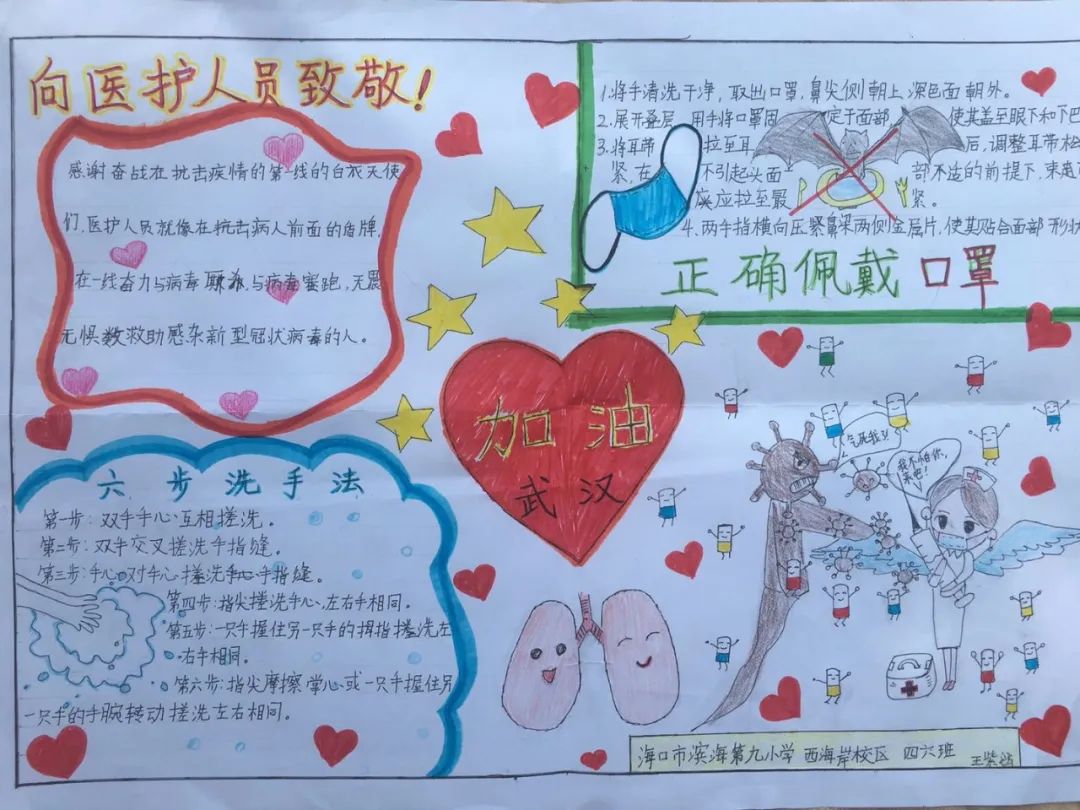 向医护人员致敬！
感谢奋战在抗击疫情的第一线的白衣天使
们.医护人员就像在抗击病人前面的盾牌,
在一线奋力与病毒 与病毒赛跑,无畏
无惧 救助感染新型冠状病毒的人。
1.将手清洗干净,取出口罩,鼻尖侧朝上,深色面朝外。
2.展开叠层,用手将口罩固定于面部,使其盖至眼下和下巴
3.将耳带拉至耳后,调整耳带松
紧,在不引起头面部不适的前提下,
应拉至最紧。
4.两手指横向压紧鼻梁两侧金属片,使其贴合面部形状
正确佩戴口罩
加油
武汉
六步洗手法
第一步:双手手心、互相搓洗。
第二步:双手交叉搓洗手指缝。
第三步:手心对手心搓洗手心手指缝。
第四步:指尖搓洗手心、左右手相同。
第五步:一只手握住另一只手的拇指搓洗左
右手相同。
第六步:指尖摩擦掌心或一只手握住另
一只手的手腕转动搓洗左右相同。
气死我了!
我不怕你,
来吧!
海口市滨海第九小学 西海岸校区 四六班 王紫